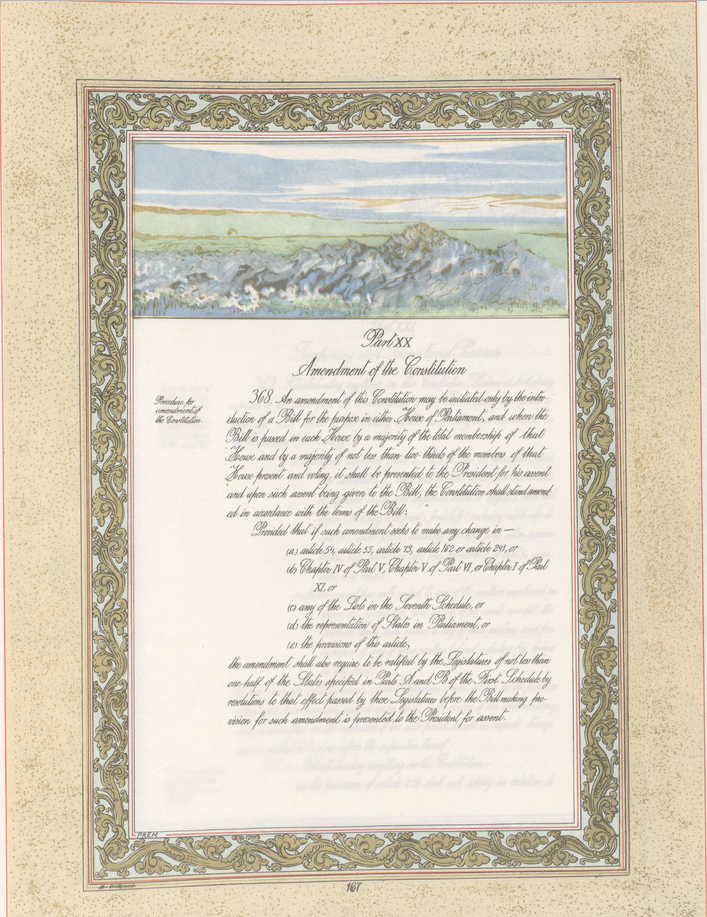 Part XX
Amendment of the Constitution
Procedure for
amendment of
the Constitution.
368 An amendment of this Constitution may be initiated only by the intro-
duction of a Bill for the purpose in either House of Parliament, and when the
Bill is passed in each House by a majority of the total membership of that
House and by a majority of not less than two-thirds of the members of that
House present and voting, it shall be presented to the President for his assent
and upon such assent being given to the Bill, the Constitution shall stand amend
ed in accordance with the terms of the Bill:
Provided that if such amendment seeks to make any change in —
(a) article 54, article 55, article 73, article 162 or article 241, or
(b) Chapter IV of Part V, Chapter V of Part VI, or Chapter I of Part
XI, or
(c) any of the Lists in the Seventh Schedule, or
(d) the representation of States in Parliament, or
(e) the provisions of this article,
the amendment shall also require to be ratified by the Legislatures of not less than
one-half of the States specified in Parts A and B of the First Schedule by
resolutions to that effect passed by those Legislatures before the Bill making pro-
vision for such amendment is presented to the President for assent.
PREM
167